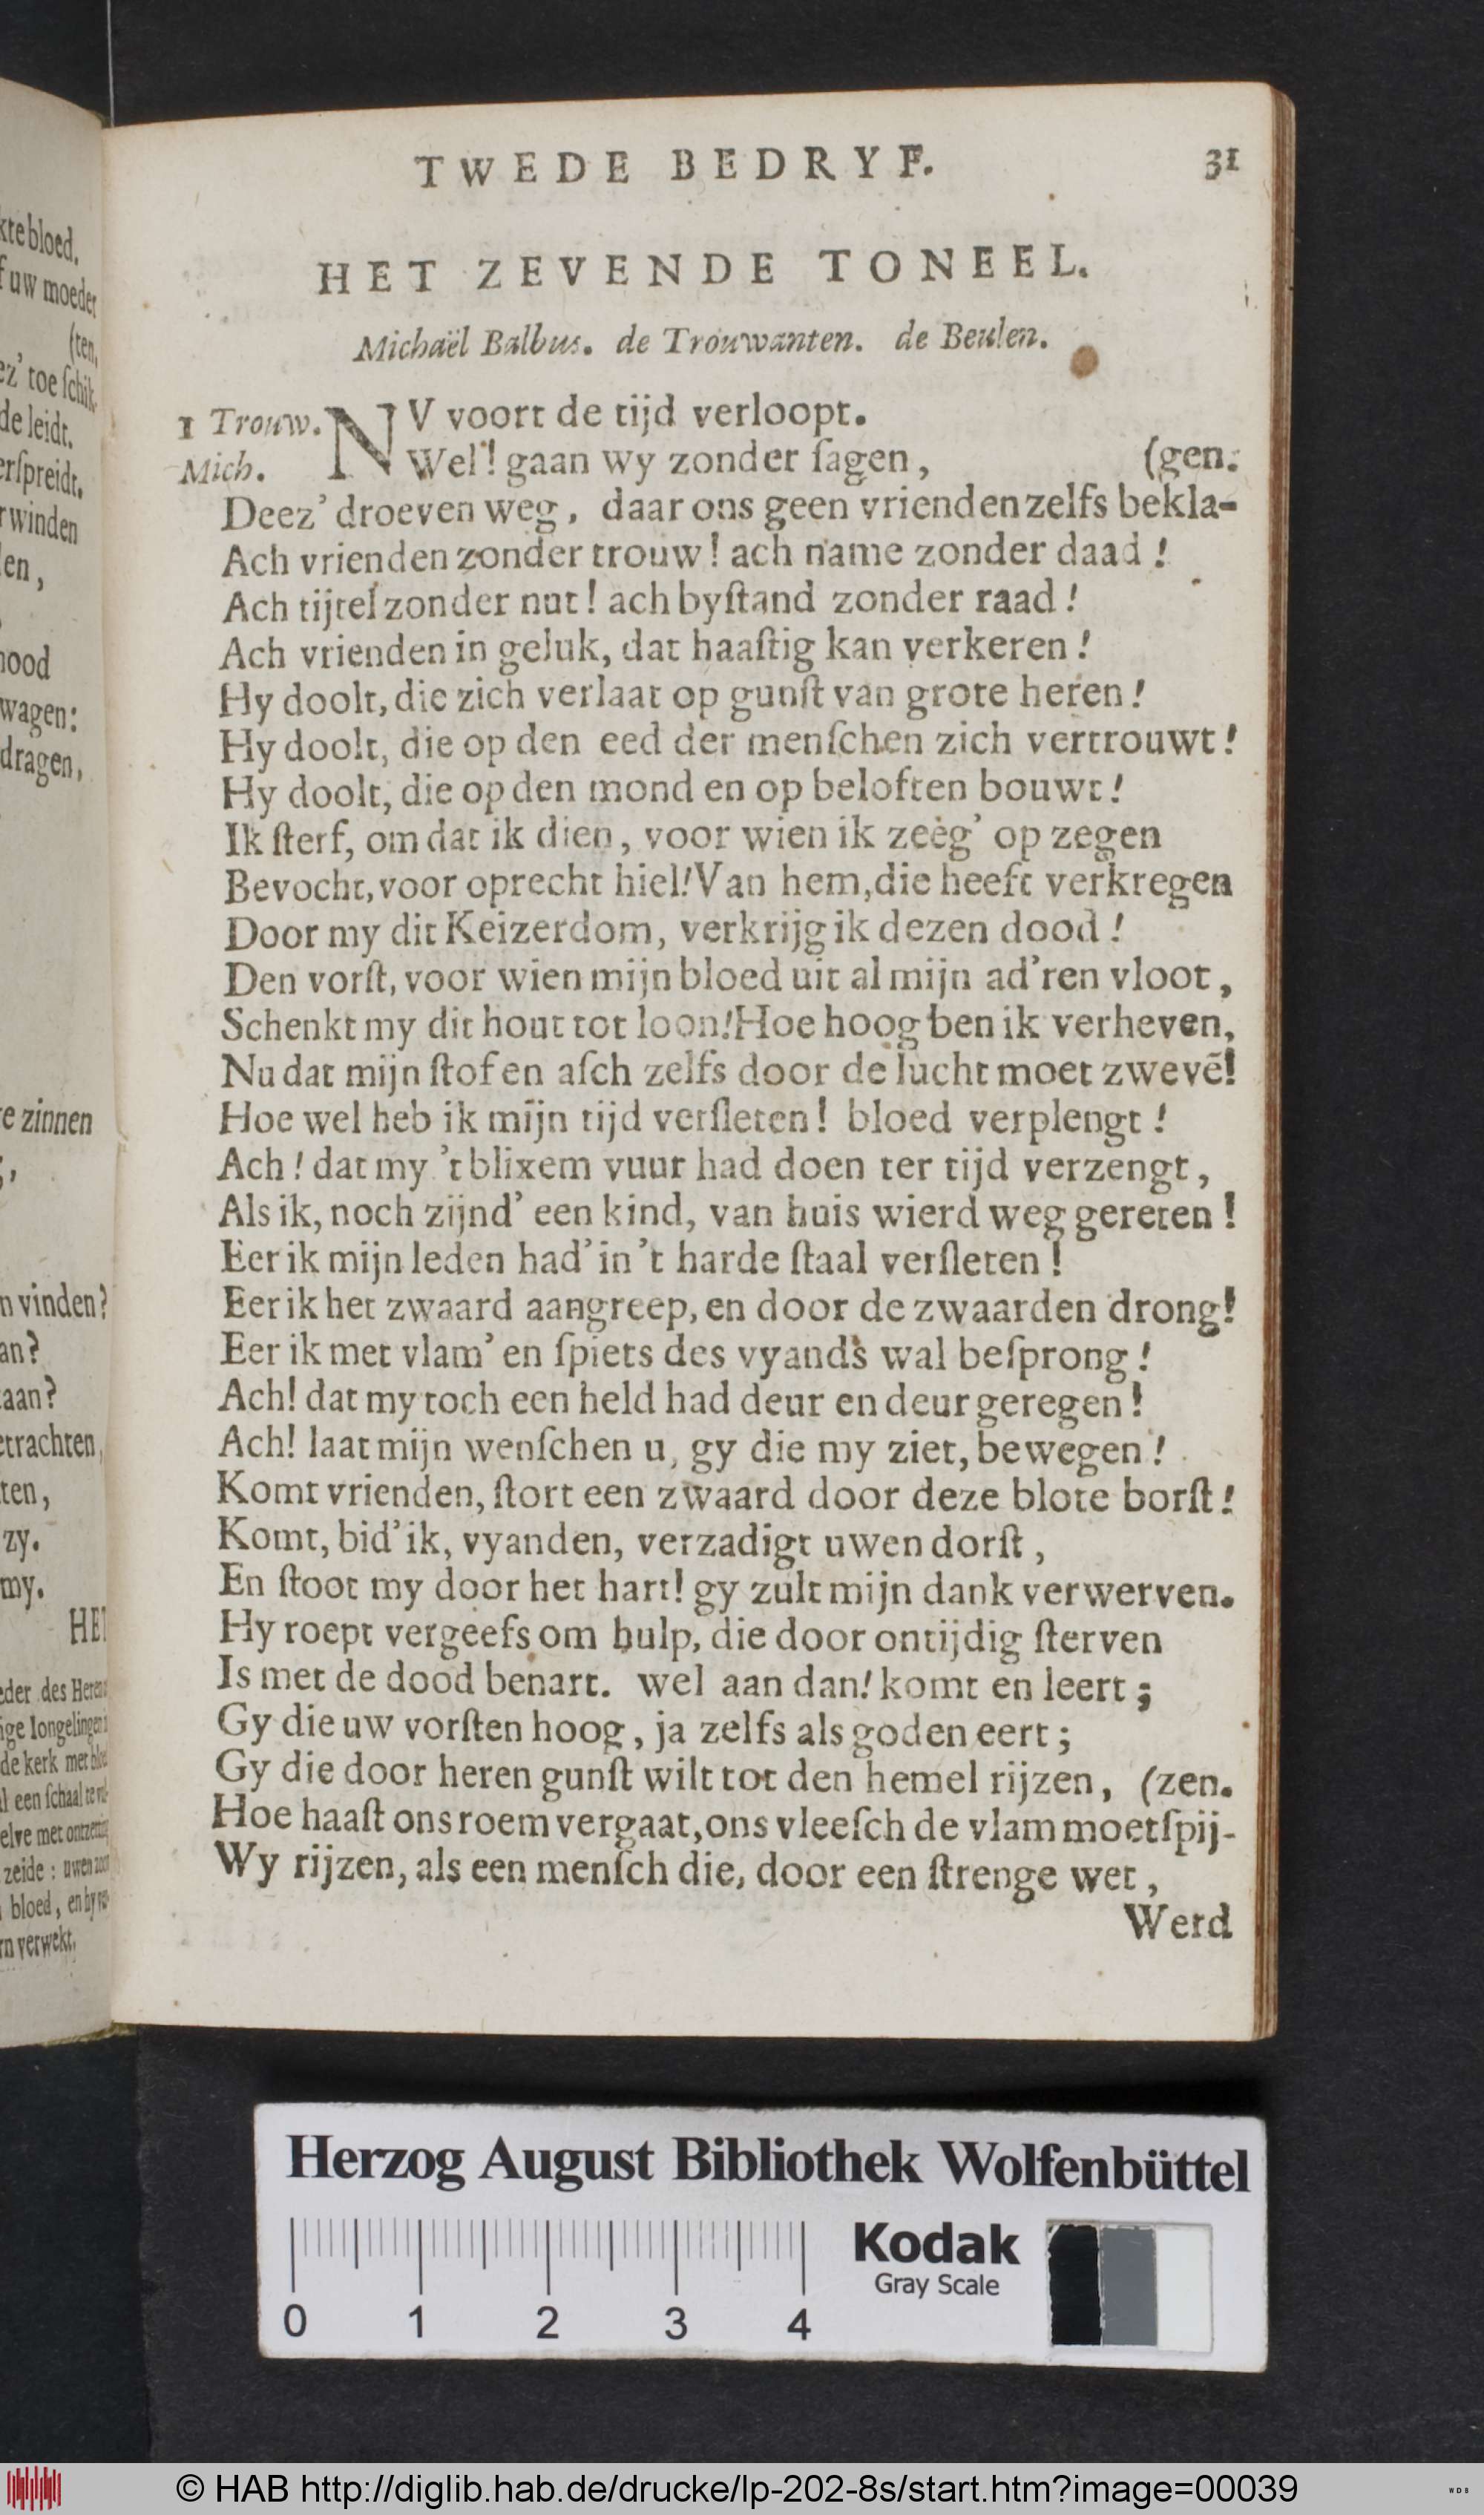 TWEDE BEDRYF. 31
HET ZEVENDE TONEEL.
Michaël Balbus. de Trouwanten. de Beulen.
1 Trouw. NV voort de tijd verloopt.
Mich. Wel! gaan wy zonder ſagen, (gen.
Deez' droeven weg, daar ons geen vrienden zelfs bekla-
Ach vrienden zonder trouw! ach name zonder daad!
Ach tijtel zonder nut! ach byſtand zonder raad!
Ach vrienden in geluk, dat haaſtig kan verkeren!
Hy doolt, die zich verlaat op gunſt van grote heren!
Hy doolt, die op den eed der menſchen zich vertrouwt!
Hy doolt, die op den mond en op beloften bouwt!
Ik ſterf, om dat ik dien, voor wien ik zeeg' op zegen
Bevocht, voor oprecht hiel! Van hem, die heeft verkregen
Door my dit Keizerdom, verkrijg ik dezen dood!
Den vorſt, voor wien mijn bloed uit al mijn ad'ren vloot,
Schenkt my dit hout tot loon! Hoe hoog ben ik verheven,
Nu dat mijn ſtof en aſch zelfs door de lucht moet zwevē!
Hoe wel heb ik mijn tijd verſleten! bloed verplengt!
Ach! dat my 't blixem vuur had doen ter tijd verzengt,
Als ik, noch zijnd' een kind, van huis wierd weg gereten!
Eer ik mijn leden had' in 't harde ſtaal verſleten!
Eer ik het zwaard aangreep, en door de zwaarden drong!
Eer ik met vlam' en ſpiets des vyands wal beſprong!
Ach! dat my toch een held had deur en deur geregen!
Ach! laat mijn wenſchen u, gy die my ziet, bewegen!
Komt vrienden, ſtort een zwaard door deze blote borſt!
Komt, bid' ik, vyanden, verzadigt uwen dorſt,
En ſtoot my door het hart! gy zult mijn dank verwerven.
Hy roept vergeefs om hulp, die door ontijdig ſterven
Is met de dood benart. wel aan dan! komt en leert;
Gy die uw vorſten hoog, ja zelfs als goden eert;
Gy die door heren gunſt wilt tot den hemel rijzen, (zen.
Hoe haaſt ons roem vergaat, ons vleeſch de vlam moet ſpij-
Wy rijzen, als een menſch die, door een ſtrenge wet,
Werd
kte bloed.
uw moeder
(ten,
ez' toe ſchik.
de leidt.
erſpreidt.
winden
en,
nood
wagen:
dragen,
e zinnen
n vinden?
an?
aan?
etrachten,
ten,
zy.
my.
HET
eder des Heren
ige Iongelingen
de kerk met
l een ſchaal te
elve met
zeide: uwen
bloed, en hy
rn verwekt.
Herzog August Bibliothek Wolfenbüttel
Kodak
Gray Scale
0 1 2 3 4
© HAB http://diglib.hab.de/drucke/lp-202-8s/start.htm?image=00039
WDB